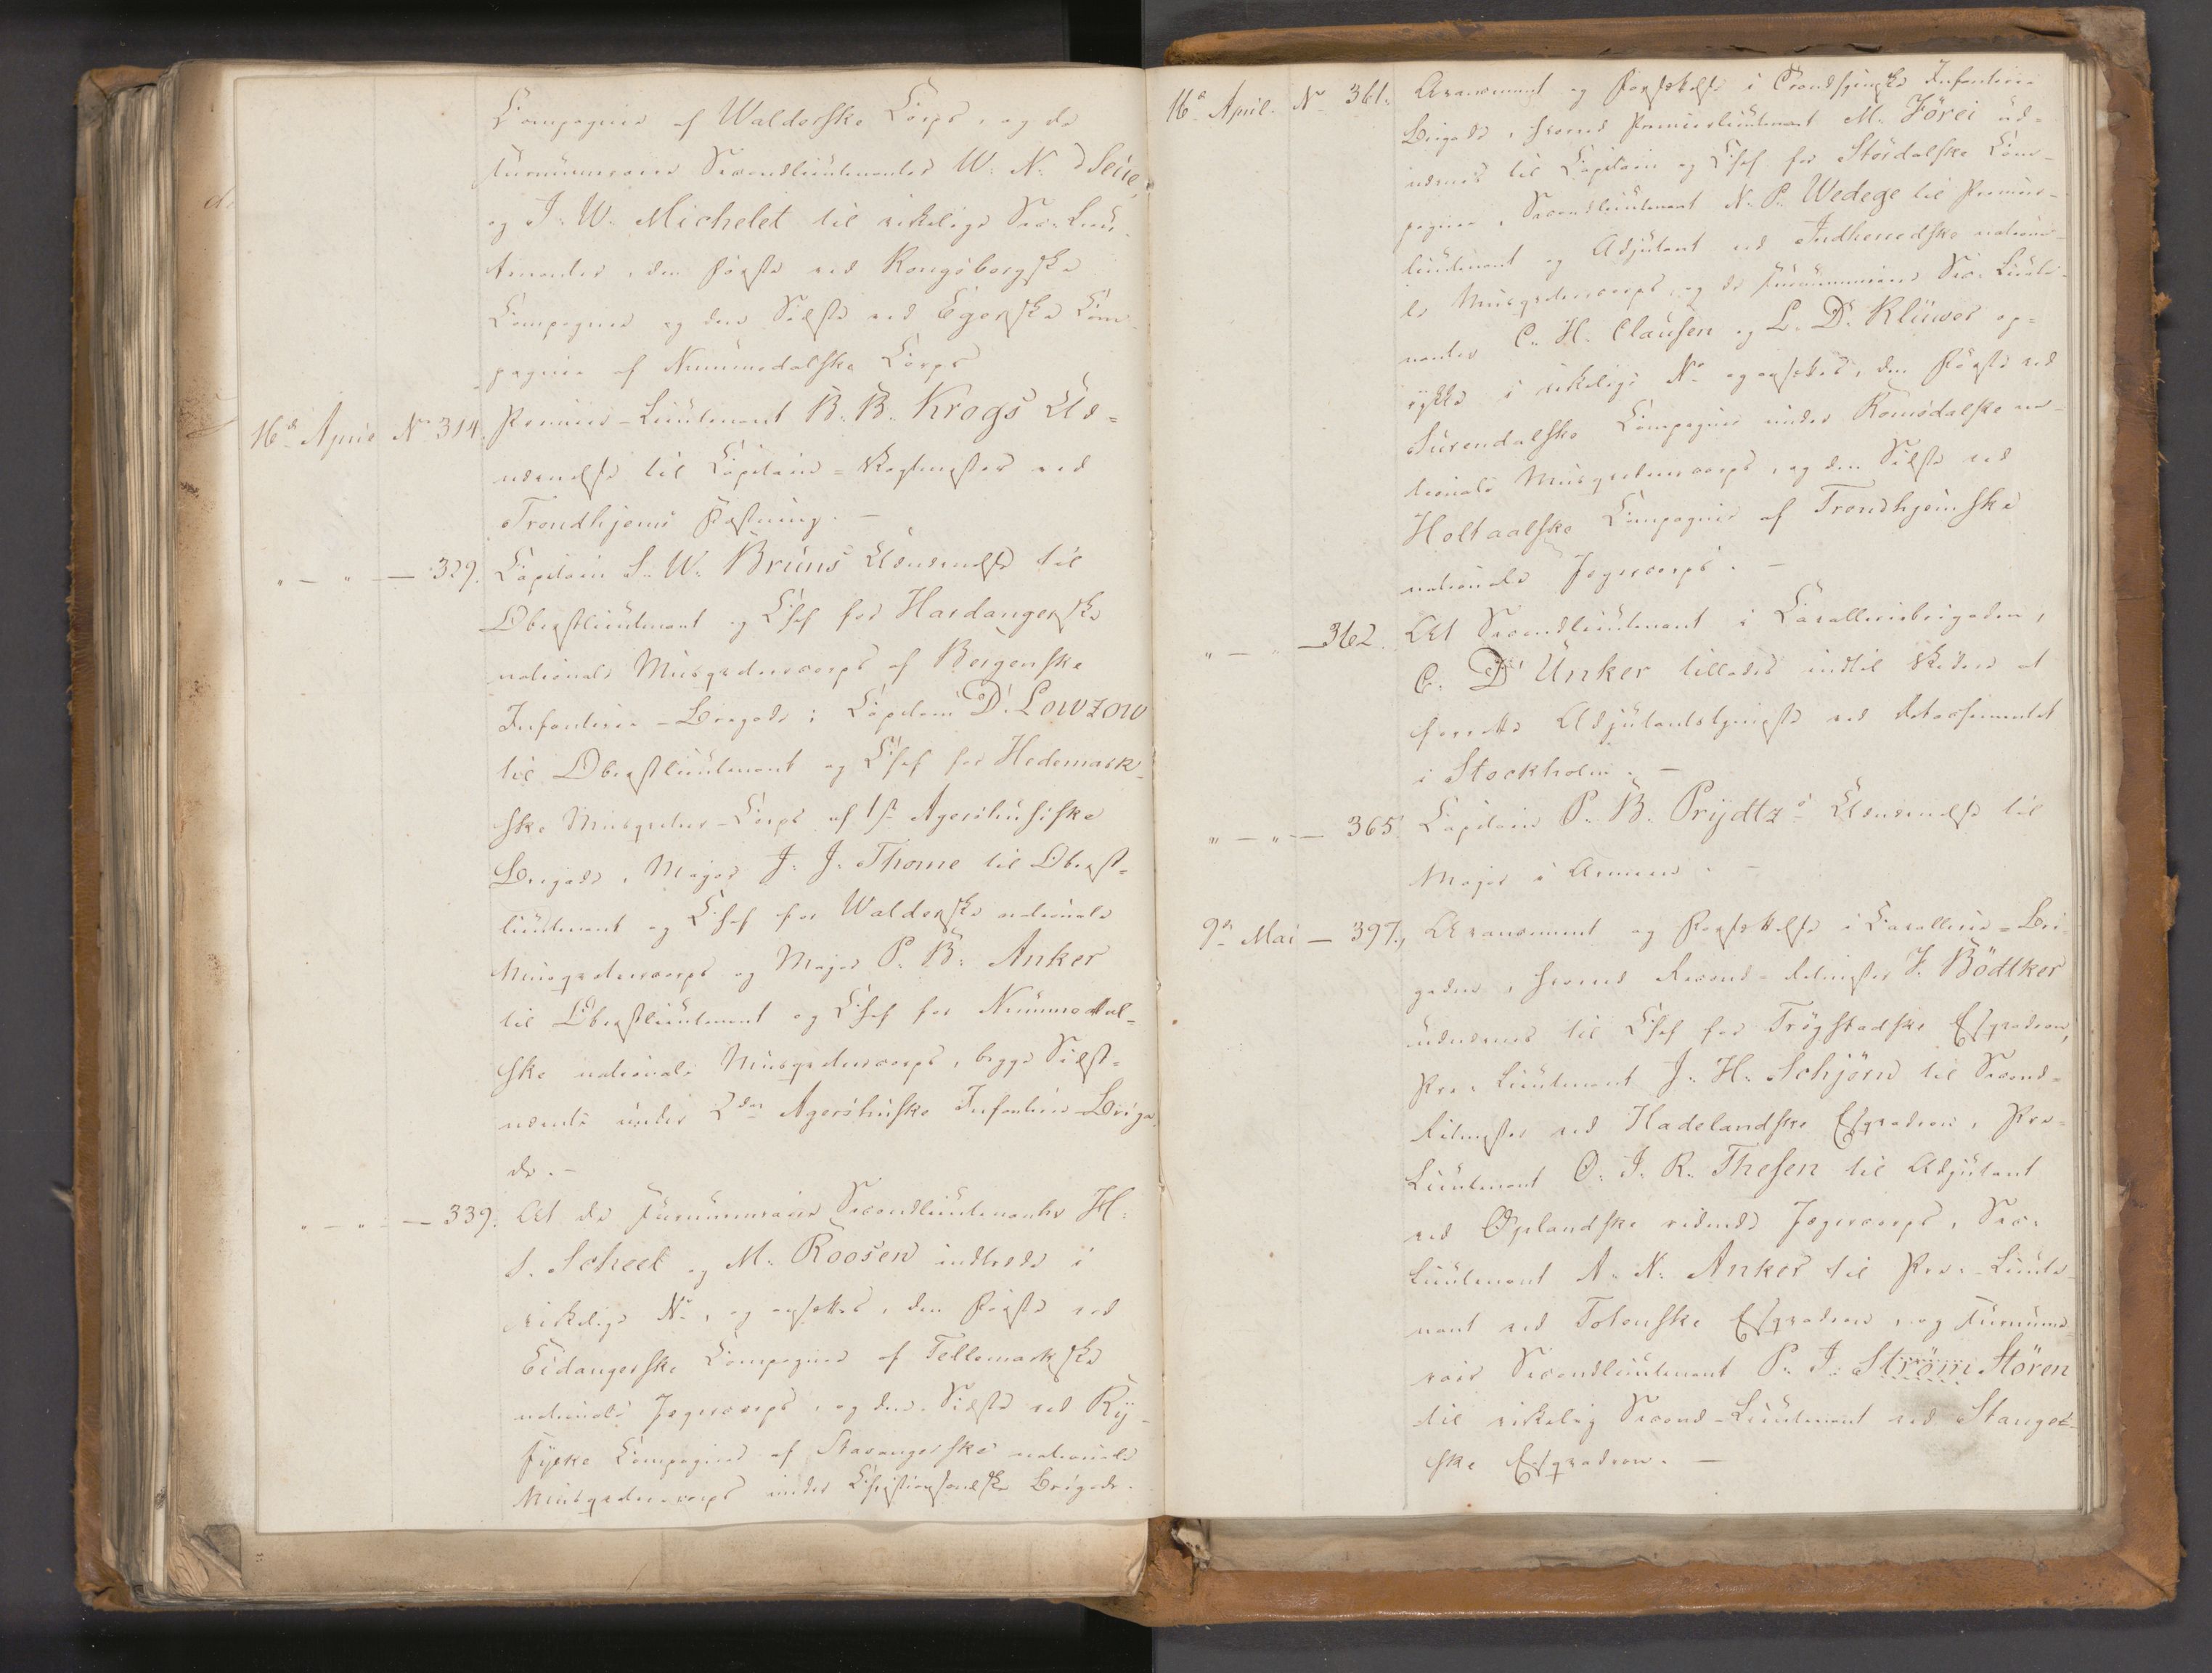 Compagnie af Walderske Corps, og de
surnumeraire Secondlieutenanter W. N. d Seue,
og J. W. Michelet til virkelige Sec: Lieu-
tenanter, den første ved Kongsbergske
Compagnie og den Sidste ved Egerske Com-
pagnie af Nummedalske Corps
16d April No 314. Premier-Lieutenant B. B. Krogs Ud-
nævnelse til Capitain-Vagtmester ved
Trondhjems Fæstning. –
" – " – 329. Capitain S. W. Bruns Udnævnelse til
Oberstlieutenant og Chef for Hardangerske
nationale Musqueteercorps af Bergenske
Infanterie-Brigade; Capitain D. Lowzow
til Oberstlieutenant og Chef for Hedemark-
ske Musqueteer-Corps af 1ste Agershusiske
Brigade, Major J. J. Thome til Oberst-
lieutenant og Chef for Walderske nationale
Musqueteercorps og Major P. B. Anker
til Oberstlieutenant og Chef for Nummedal-
ske nationale Musqueteercorps, begge Sidst-
nævnte under 2den Agershuske Infanterie-Briga-
de. –
" – " – 339. At de surnumeraire Secondlieutenanter H.
S. Scheel og M. Roosen indtræde i
virkelige No, og ansættes, den første ved
Eidangerske Compagnie af Tellemarkske
nationale Jægercorps, og den Sidste ved Ry-
fylke Compagnie af Stavangerske nationale
Musqueteercorps under Christiansandske Brigade.
16d April. No 361. Avancement og Forsættelse i Trondhjemske Infanterie
Brigade, hvorved Premierlieutenant M. Förei ud-
nævnes til Capitain og Chef for Stördalske Com-
pagnie, Secondlieutenant N. P. Wedege til Premier-
lieutenant og Adjutant ved Indherredske nationa-
le Musqueteercorps, og de surnumeraire Sec: Lieute-
nanter C. H. Clausen og L. D. Klüwer op-
rykke i virkelige No og ansættes, den første ved
Surendalske Compagnie under Romsdalske na-
tionale Musqueteercorps, og den Sidste ved
Holtaalske Compagnie af Trondhjemske
nationale Jægercorps. –
" – " – 362. At Secondlieutenant i Cavalleribrigaden,
C. D Unker tillades indtil Videre at
forrette Adjutantstjeneste ved Detachementet
i Stockholm. –
" – " – 365. Capitain P. B. Prydtz's Udnævnelse til
Major i Armeen. –
9d Mai – 397., Avancement og Forsættelse i Cavallerie-Bri-
gaden, hvorved Second-Ritmester J. Bödtker
udnævnes til Chef for Trögstadske Esqvadron,
Pr: Lieutenant J. H. Schjörn til Second-
Ritmester ved Hadelandske Esqvadron, Pr:
Lieutenant O. J. R. Thesen til Adjutant
ved Oplandske ridende Jægercorps, Sec:
Lieutenant A. N. Anker til Pr:-Lieute-
nant ved Totenske Esqvadron, og surnume-
rair Secondlieutenant P. J. Ström Stören
til virkelig Second-Lieutenant ved Stange-
ske Esqvadron. –